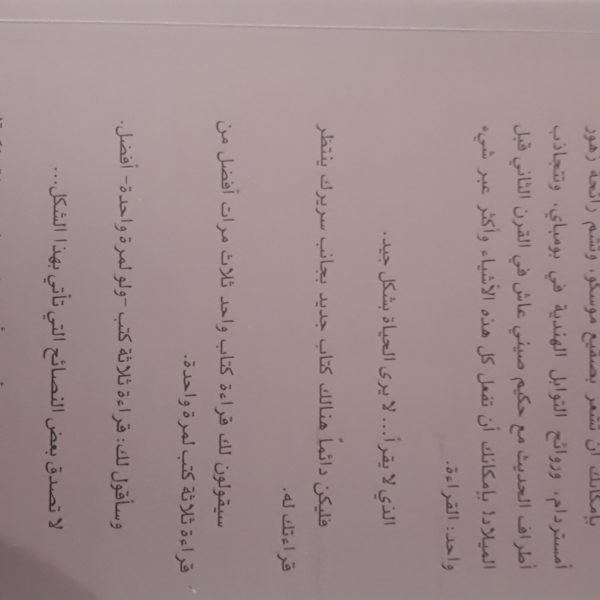 بإمكانك أن تشعر بصقيع موسكو، وتشم رائحة زهور
أمستردام، وروائح التوابل الهندية في بومباي، وتتجاذب
أطراف الحديث مع حكيم صيني عاش في القرن الثاني قبل
الميلاد! بإمكانك أن تفعل كل هذه الأشياء وأكثر عبر شيء
واحد: القراءة.
الذي لا يقرأ... لا يرى الحياة بشكل جيد.
فليكن دائماً هنالك كتاب جديد بجانب سريرك ينتظر
قراءتك له.
سيقولون لك قراءة كتاب واحد ثلاث مرات أفضل من
قراءة ثلاثة كتب لمرة واحدة.
وسأقول لك: قراءة ثلاثة كتب -ولو لمرة واحدة- أفضل.
لا تصدق بعض النصائح التي تأتي بهذا الشكل...